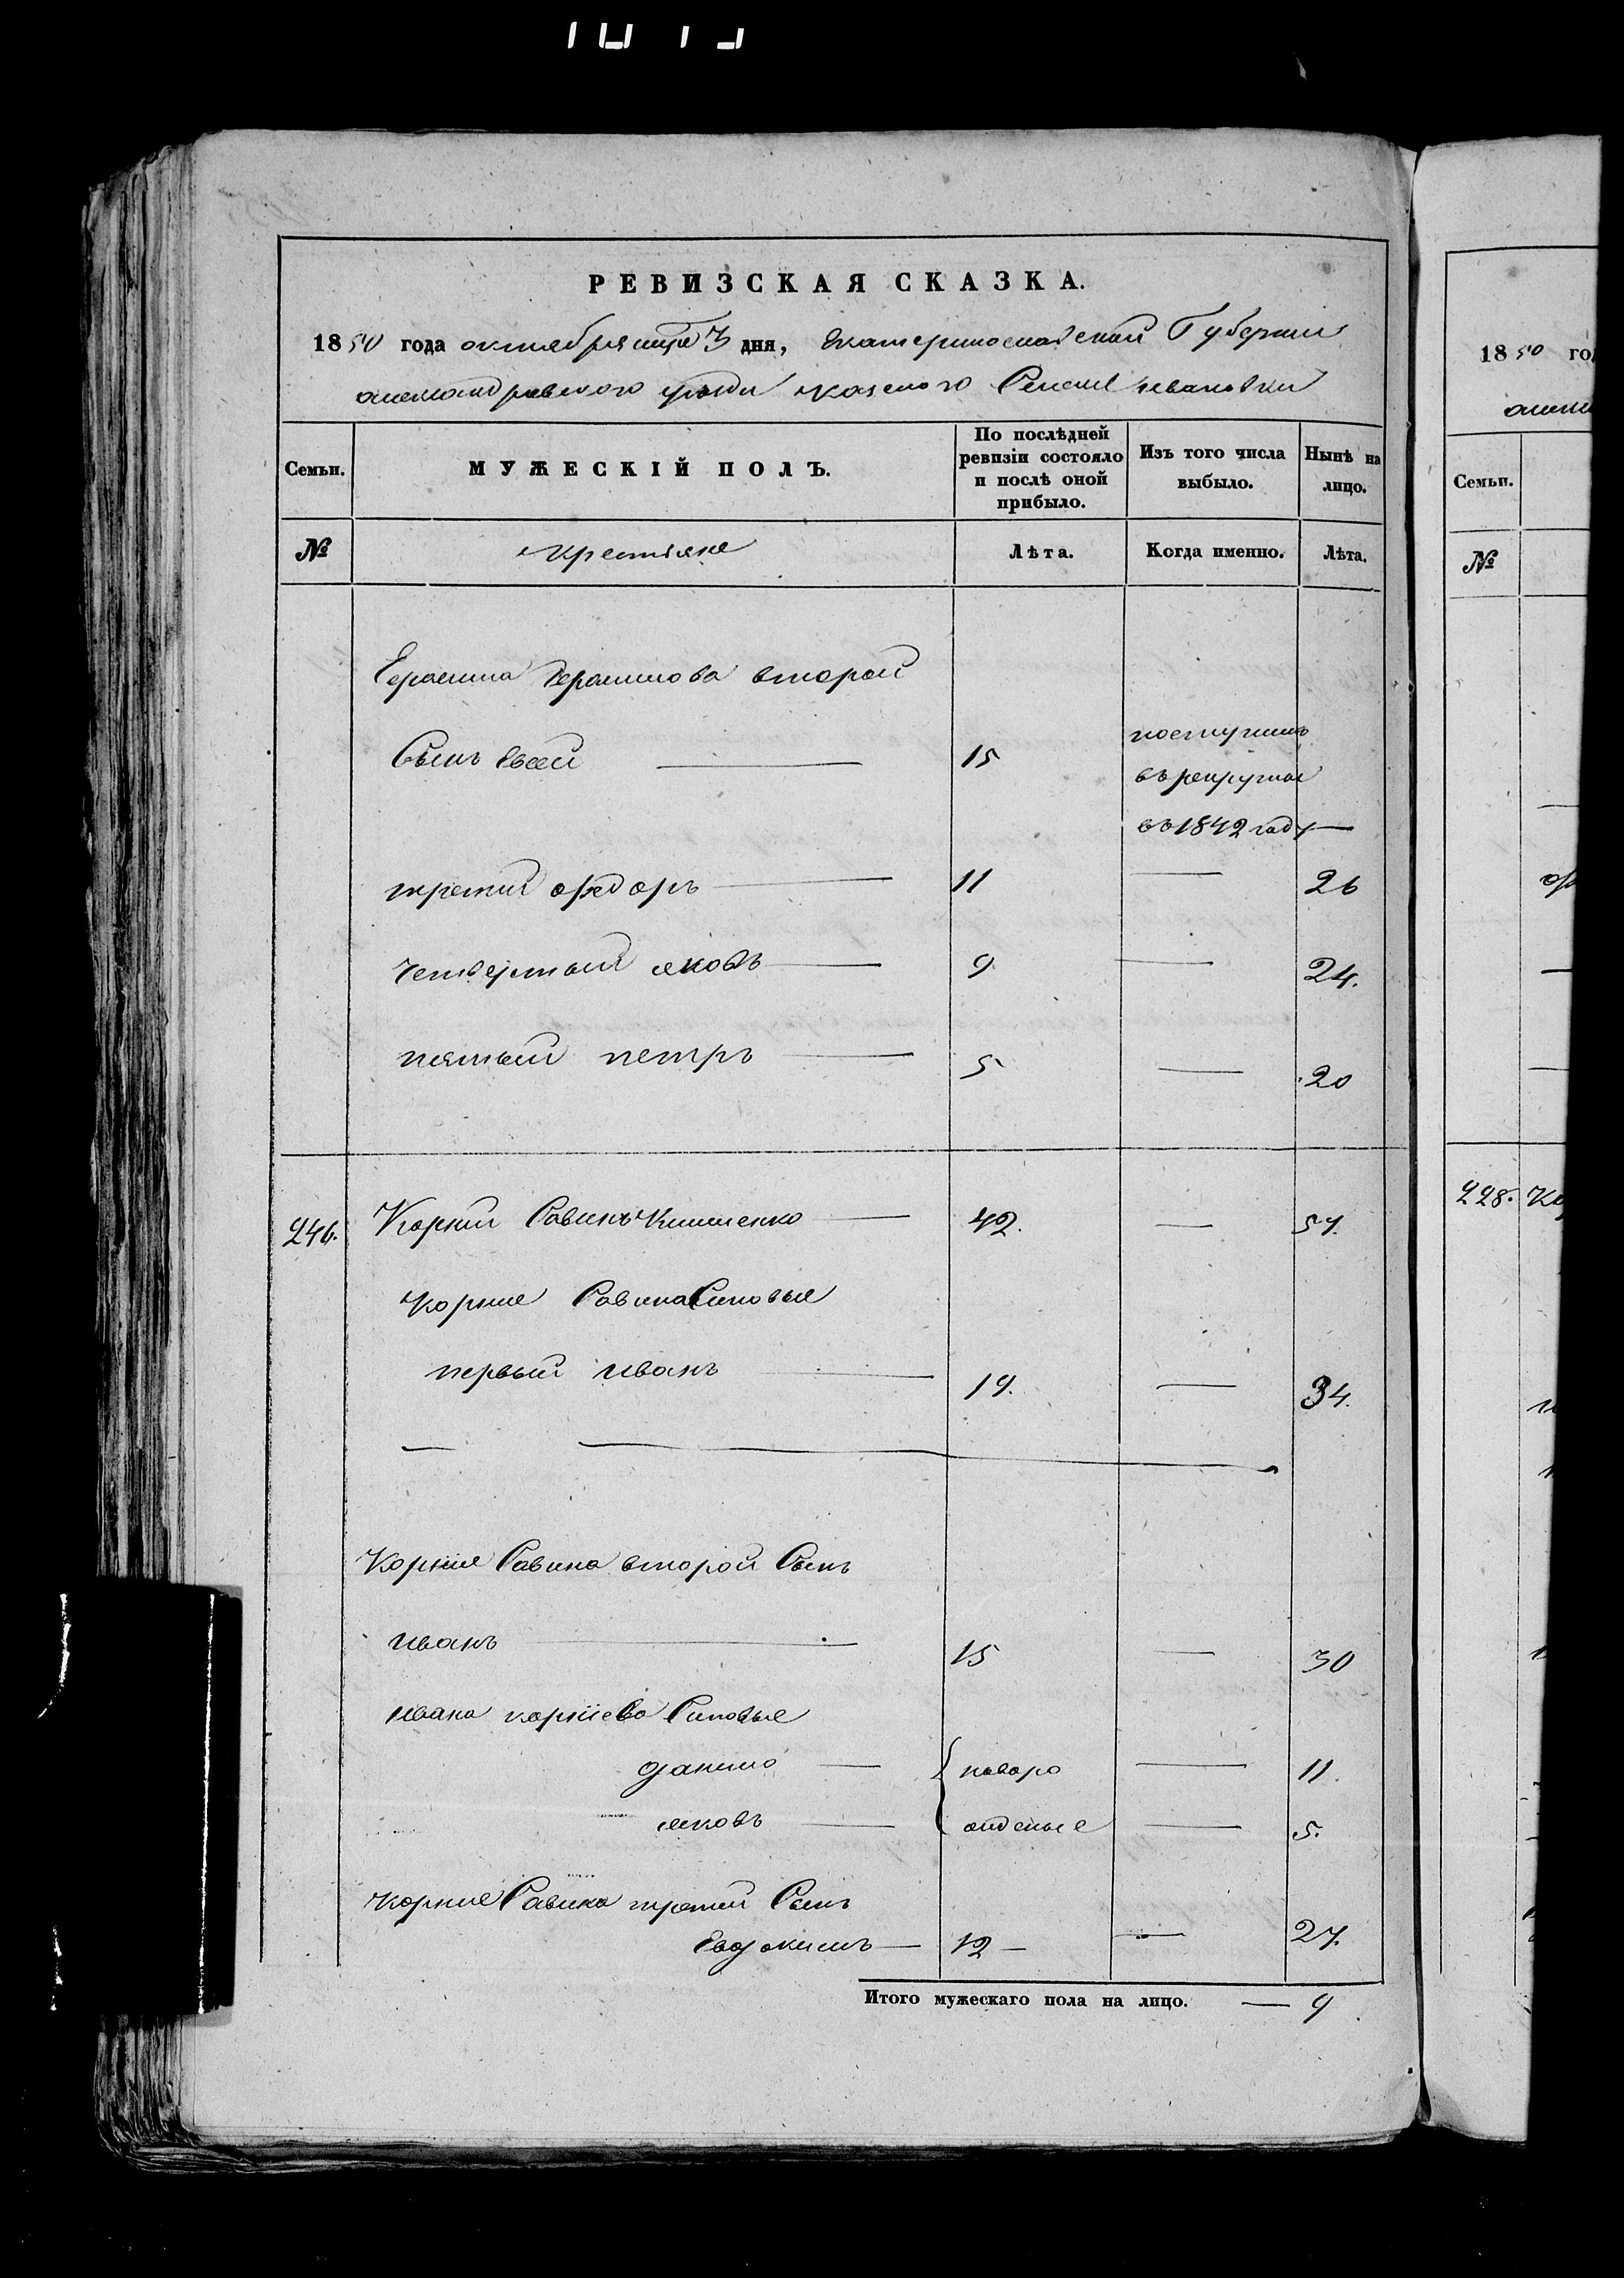 РЕВИЗСКАЯ СКАЗКА.
1850 года октября мца 3 дня, Екатеринославской Губернии
александровского уезда казеного Селения ивановки
Семьи.
МУЖЕСКІЙ ПОЛЪ.
По послѣдней ревизіи состояло и послѣ оной прибыло.
Изъ того числа выбыло.
Нынѣ на лицо.
№
крестьяне
Лѣта.
Когда именно.
Лѣта.
Герасима Герасимова второй
Сынъ Евсей 15 поступилъ
въ рекруты
въ 1842 году —
третий федоръ — 11 — 26
четвертый яковъ — 9 — 24.
пятый петръ — 5 — 20
246. Корний Савинъ — 42. — 57.
корнея Савина Синовья
первый иванъ — 19. — 34.
Корнея Савина второй Сынъ
иванъ — 15 — 30
ивана корнієва Синовья
данило — новоро — 11.
яковъ — жденые — 5.
корнея Савина третий Сынъ
Евдокимъ — 12 — — 27.
Итого мужескаго пола на лицо. — 9
1850 го
Семьи.
№
228.